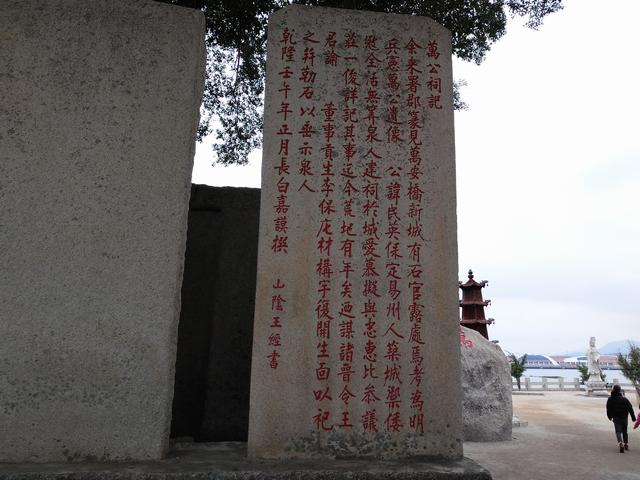 萬公祠記
余來署郡篆見萬安橋新城有石官露處焉考為明
兵憲萬公遺像　公諱民英保定易州人築城禦倭
慰全活無筭泉人建祠於城愛慕擬與忠惠比叅議
莊一俊詳記其事迄今荒圮有年矣迺謀諸晉令王
君諭　董事貢生李保庇材構宇復開生面以祀
之并勒石以垂示泉人
乾隆壬午年正月長白嘉謨撰　山陰王經書